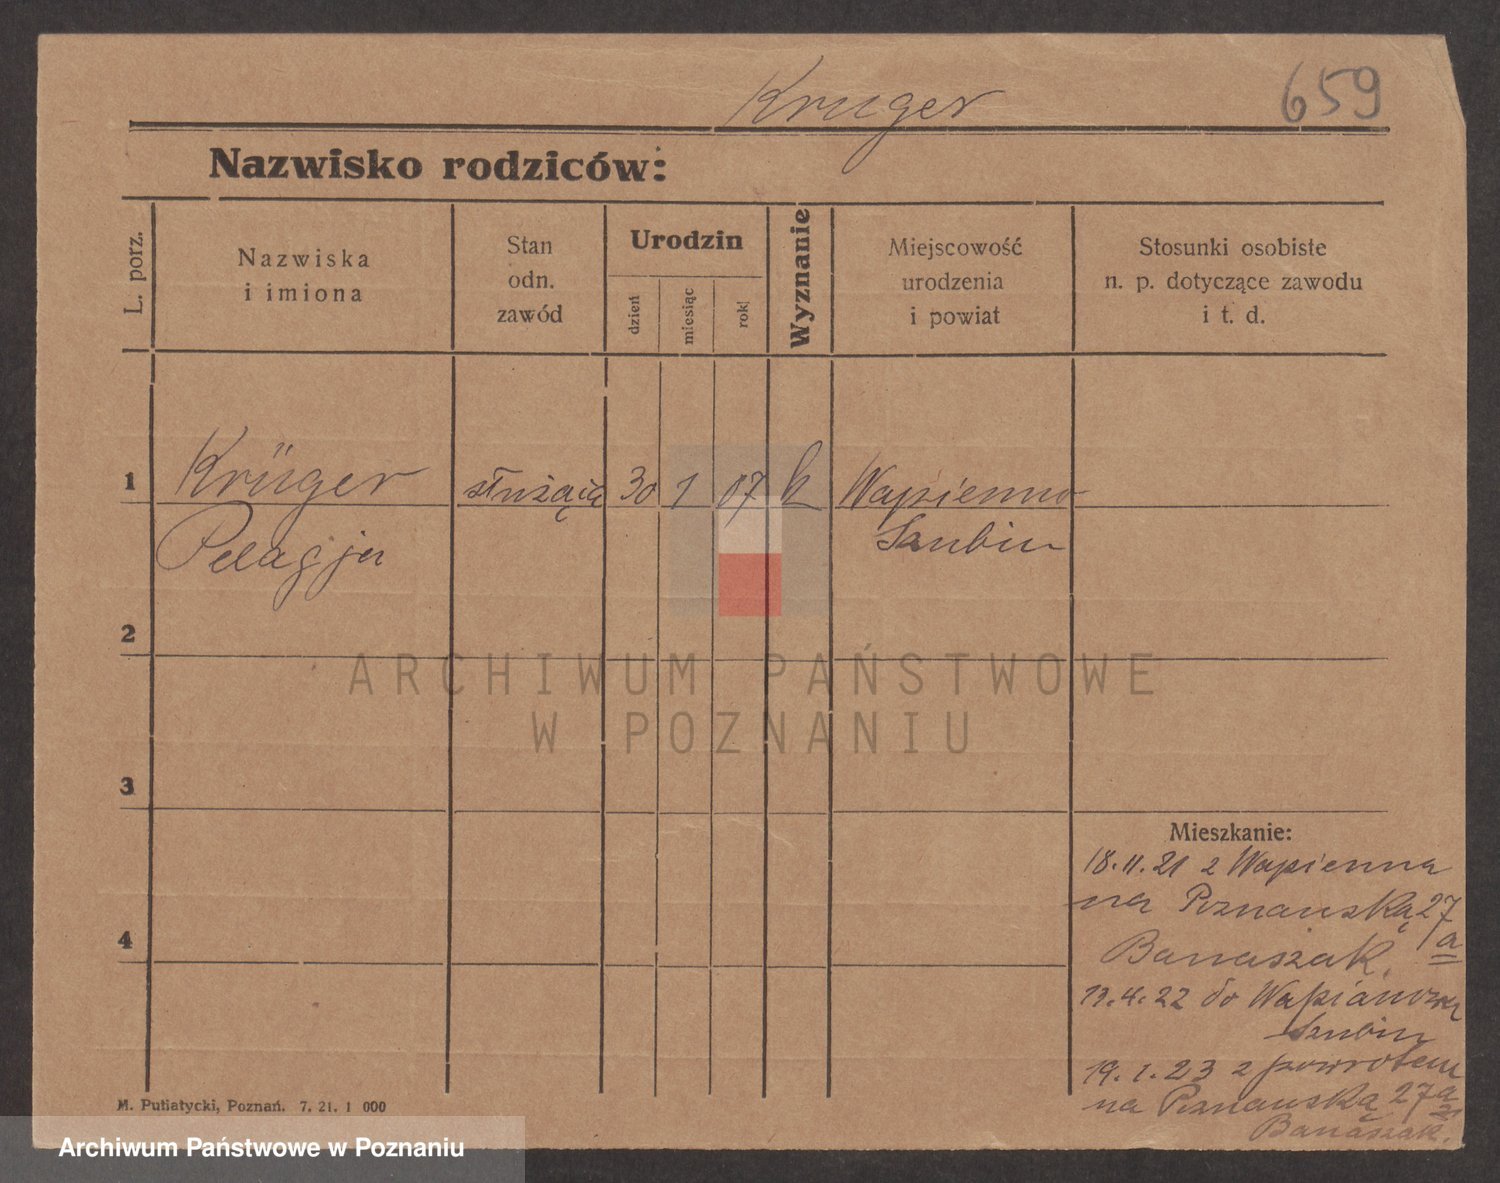 Kruger
659
Nazwisko rodziców:
L. porz.
Nazwiska
i imiona
Stan
odn.
zawód
Urodzin
dzień
miesiąc
rok
Wyznanie
Miejscowość
urodzenia
i powiat
Stosunki osobiste
n. p. dotyczące zawodu
i t. d.
1
Krüger
służąca
30
1
07
k
Wapienno
Pelagja
Szubin
2
ARCHIWUM PAŃSTWOWE
W POZNANIU
3
Mieszkanie:
18.11.21 z Wapienna
na Poznańską 27
4
a
Banaszak.
13.4.22 do
Szubin
19.1.23 z powrotem
na Poznańską 27a
Banaszak.
M. Putiatycki, Poznań. 7. 21. 1 000
Archiwum Państwowe w Poznaniu